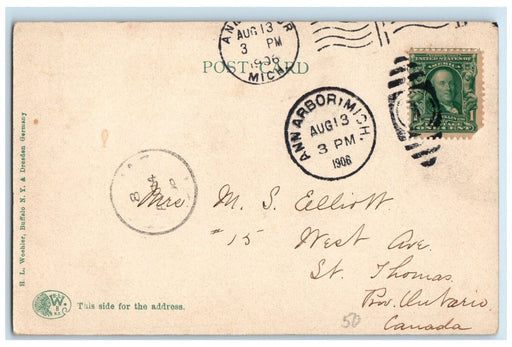 ANN ARBOR
AUG 13
3 PM
1906
MICH.
POST CARD
UNITED STATES OF AMERICA
1
ANN ARBOR, MICH.
AUG 13
3 PM
1906
Mrs. M. S. Elliott
#15 West Ave.
St. Thomas
Prov. Ontario
Canada
50
H. L. Woehler, Buffalo N. Y. & Dresden Germany
W
This side for the address.